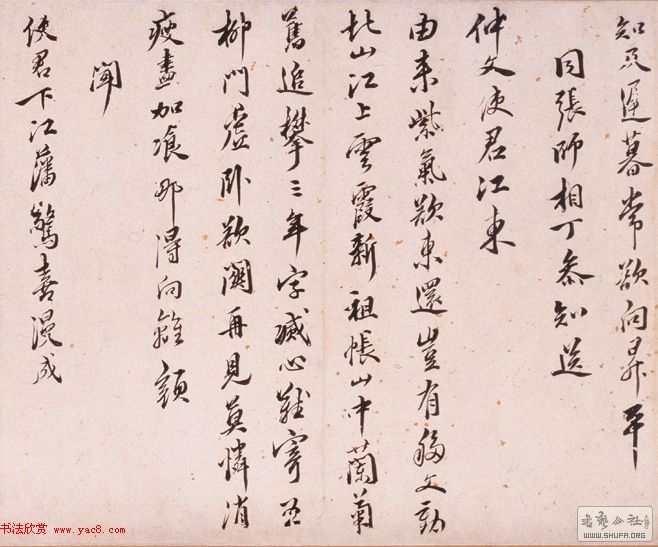 知及遲暮常欲向昇平
同張師相丁叅知送
仲文使君江東
由来紫氣欲東還豈有移文勒
北山江上雲霞新祖帳山中蘭菊
舊追攀三年字滅心難寄五
柳門虚卧欲關再見莫憐消
瘦盡加飡那得向離顔
聞
使君下江藩驚喜漫成
书法欣赏 www.yac8.com
书艺公社
WWW.SHUFA.ORG